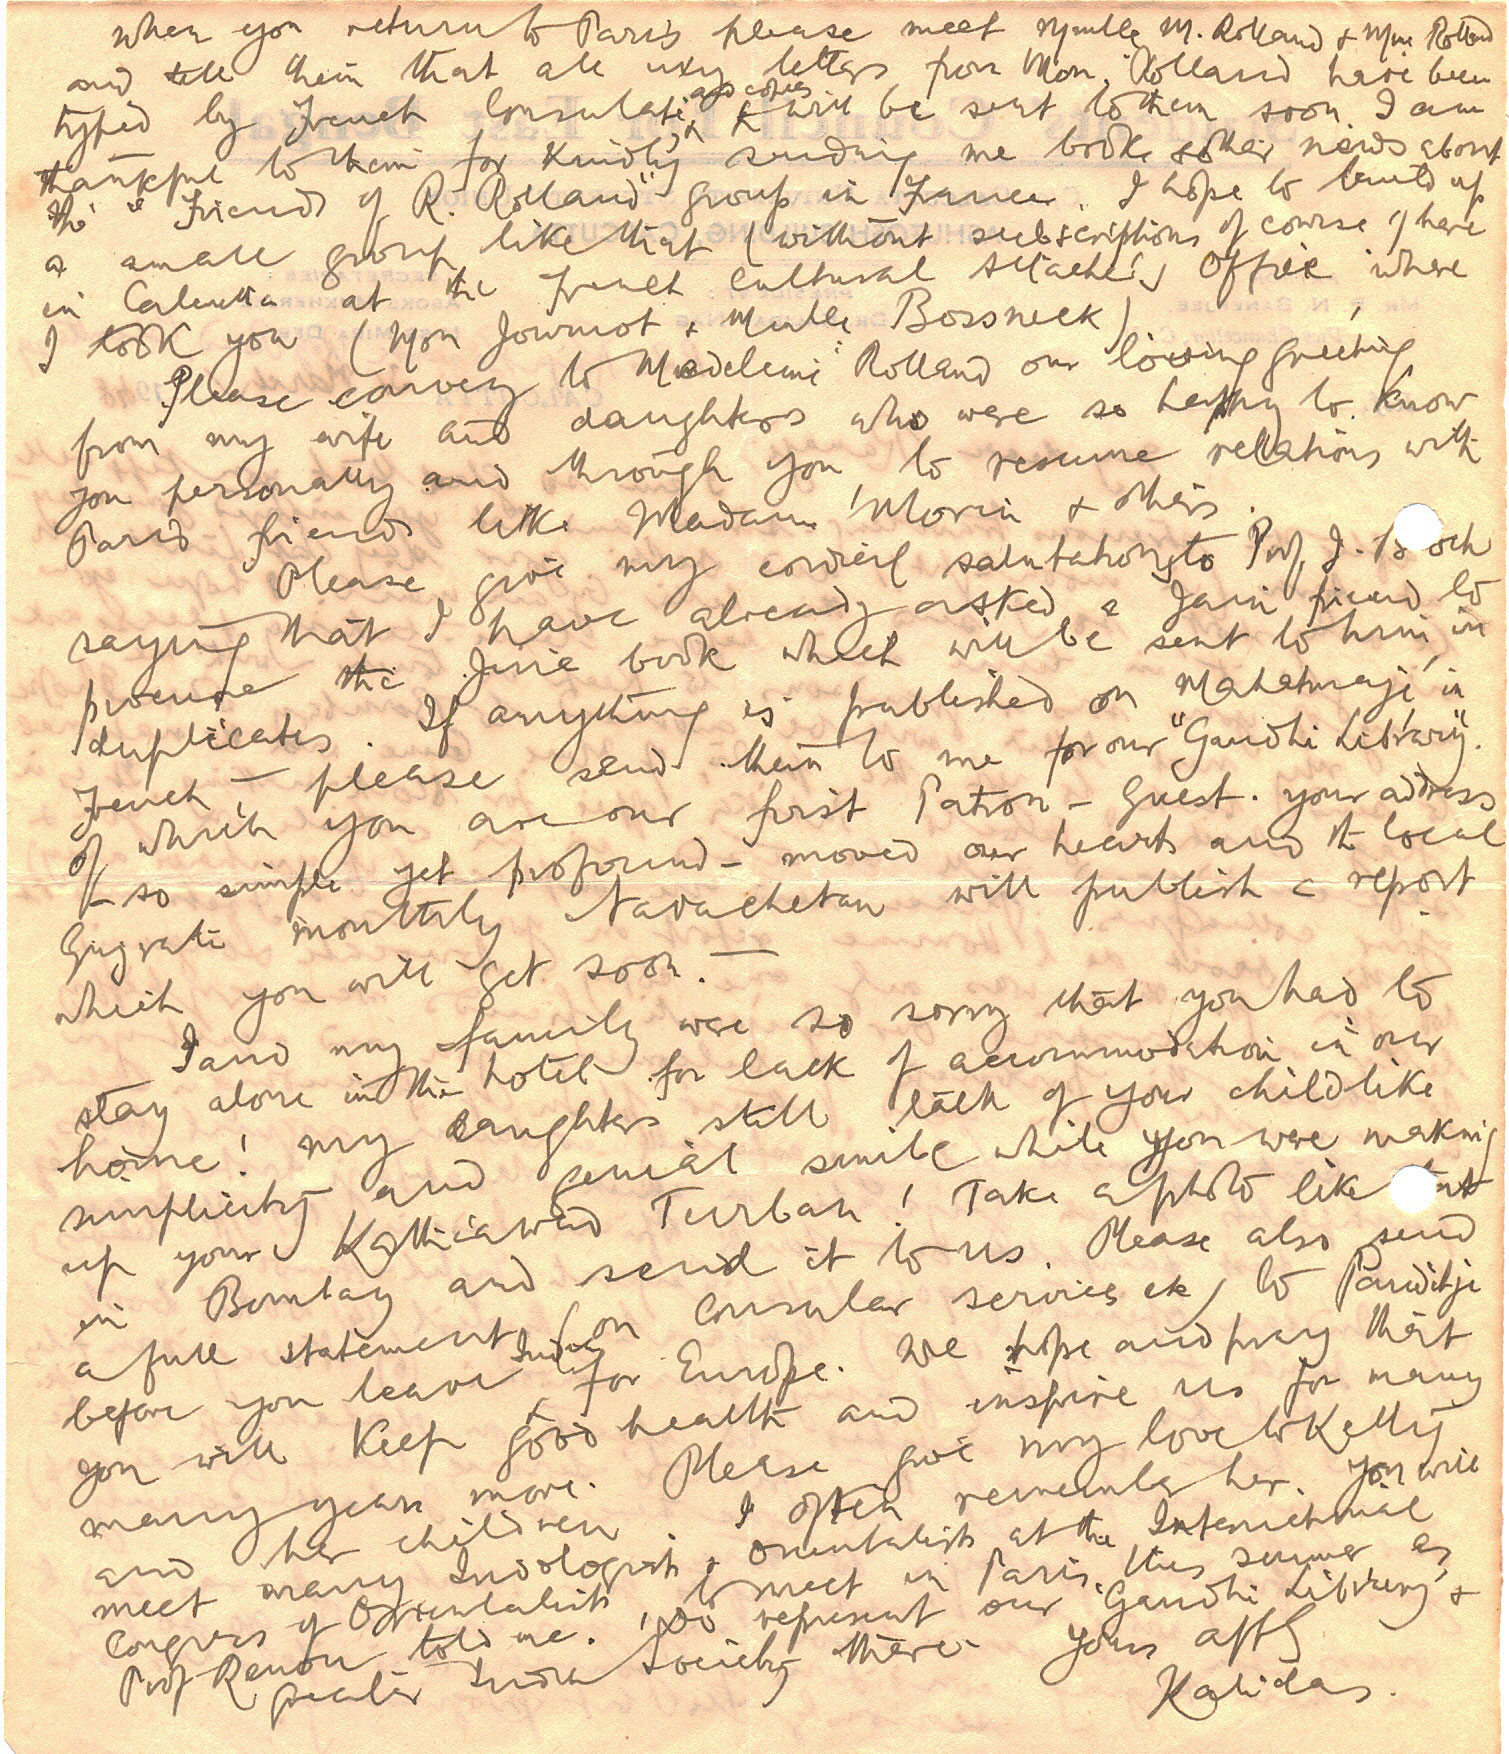 when you return to Paris please meet Mmlle M. Rolland & Mme Rolland
and tell them that all my letters from Mon. Rolland have been
typed by French Consulate, and copies will be sent to them soon. I am
thankful to them for kindly sending me book & other news about
the "Friends of R. Rolland" group in France. I hope to build up
a small group like that (without subscriptions of course) here
in Calcutta at the French Cultural Attache's Office where
I took you (Mon Journot & Mmlle Bossneck)
Please convey to Madeleine Rolland our loving greeting
from my wife and daughters who were so happy to know
you personally and through you, to resume relations with
Paris friends like Madame Morin & others.
Please give my cordial salutations to Prof. J. Bloch
saying that I have already asked a Jain friend to
procure the book which will be sent to him, in
duplicates. If anything is published on Mahatmaji in
French – please send them to me for our "Gandhi Library".
of which you are our first Patron – Guest. Your address
– so simple yet profound – moved our hearts and the local
Gujrati monthly Navachetan will publish a report
which you will get soon. –
I and my family were so sorry that you had to
stay alone in the hotel for lack of accommodation in our
home! My daughters still talk of your childlike
simplicity and genial smile while you were making
up your Kathiawad Turban! Take a photo like that
in Bombay and send it to us. Please also send
a full statement (on consular services etc) to Panditji
before you leave India for Europe. We hope and pray that
you will keep good health and inspire us for many
many years more. Please give my love to Kelly
and her children. I often remember her. You will
meet many Indologists & Orientalists at the International
Congress of Orientalists to meet in Paris this summer as
Prof Renou told me. Do represent our "Gandhi Library" &
Greater India Society there. Yours affly
Kalidas.